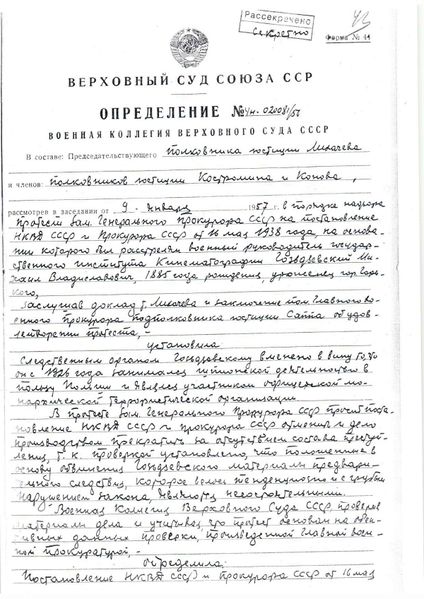 Рассекречено
Секретно
43
Форма № 44
ВЕРХОВНЫЙ СУД СОЮЗА ССР
ОПРЕДЕЛЕНИЕ № 4н-02008/57
ВОЕННАЯ КОЛЛЕГИЯ ВЕРХОВНОГО СУДА СССР
В составе: Председательствующего полковника юстиции Лихачева
и членов: полковников юстиции Костромина и Конова,
рассмотрев в заседании от 9 января 1957 г. в порядке надзора
протест зам. Генерального прокурора СССР на постановление
НКВД СССР и Прокурора СССР от 16 мая 1938 года, на основа-
нии которого был расстрелян военный руководитель государ-
ственного института Кинематографии Гоздзевский Ми-
хаил Владиславович, 1885 года рождения, уроженец гор.
Заслушав доклад т. Лихачева и заключение пом. Главного во-
енного прокурора подполковника юстиции об удов-
летворении протеста, -
установила
Следственным органом Гоздзевскому вменено в вину то, что
он с 1926 года занимался шпионской деятельностью в
пользу Польши и являлся участником офицерской мо-
нархической террористической организации.
В протесте зам. Генерального Прокурора СССР просит пос-
тановление НКВД СССР и прокурора СССР отменить и дело
производством прекратить за отсутствием состава преступ-
ления, т. к. проверкой установлено, что положенные в
основу обвинения Гоздзевского материалы предвари-
тельного следствия, которое велось тенденциозно и с грубым
нарушением закона, являются несостоятельными.
Военная Коллегия Верховного Суда СССР проверив
материалы дела и учитывая, что протест основан на объек-
тивных данных проверки, произведенной Главной воен-
ной прокуратурой, -
определила:
Постановление НКВД СССР и прокурора СССР от 16 мая